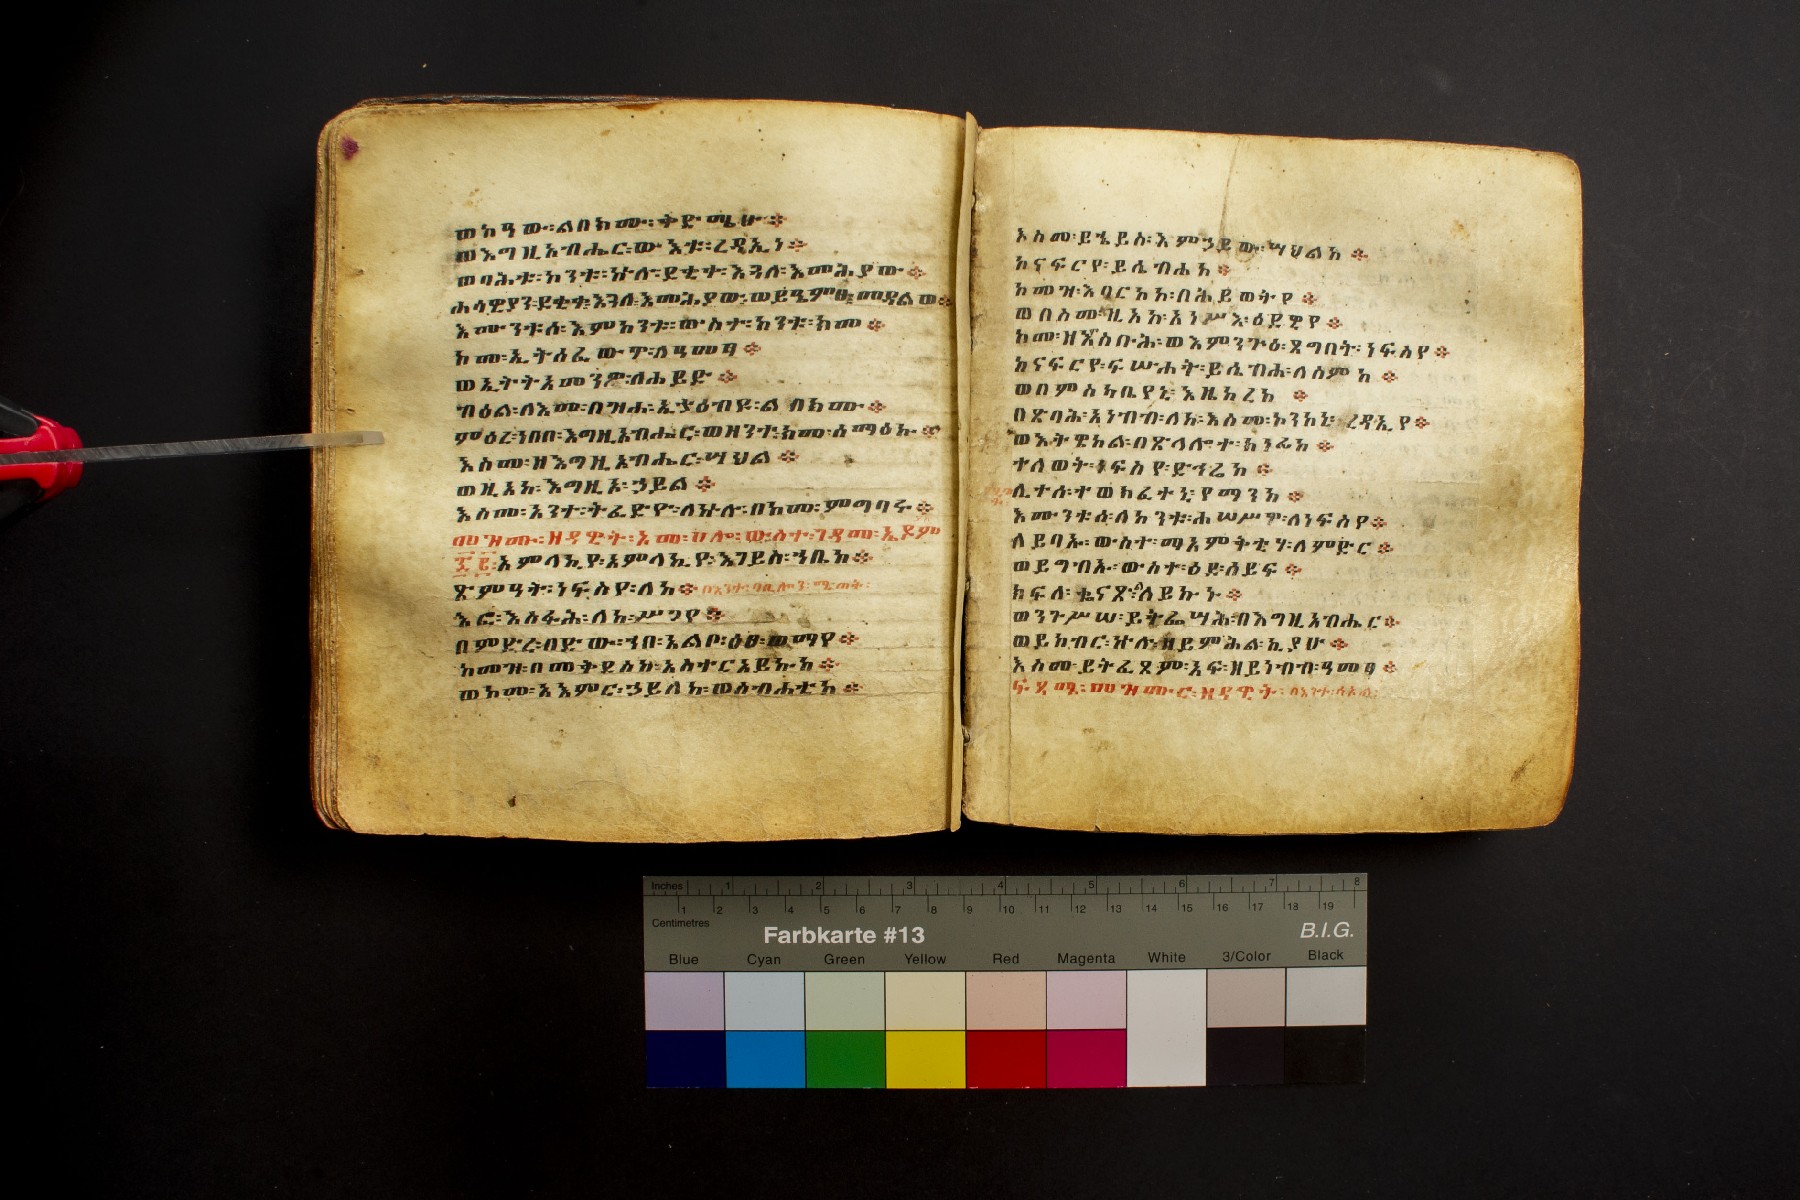 ወከዓው፡ልበክሙ፡ቅድሜሁ፨
ወእግዚአብሔር፡ውእቱ፡ረዳኢነ፨
ወባሕቱ፡ከንቱ፡ኵሉ፡ደቂቀ፡እጓለ፡እመሕያው፨
ሐሳዊያን፡ደቂቀ፡እጓለ፡እመሕያው፡ወይዔምፁ፡መዳልወ፨
እሙንቱሰ፡እምከንቱ፡ውስተ፡ከንቱ፡ከመ፨
ኢትሰፈውዋ፡ለዓመፃ፨
ወኢትትአመንዎ፡ለሐይድ፨
ብዕል፡ለእመ፡በዝሐ፡ኢታዕብዩ፡ልበክሙ፨
ምዕረ፡ነበበ፡እግዚአብሔር፡ወዘንተ፡ከመ፡ሰማዕኩ፨
እስመ፡ዘእግዚአብሔር፡ሣህል፨
ወዚአከ፡እግዚኦ፡ኃይል፨
እስመ፡አንተ፡ትፈድዮ፡ለኵሉ፡በከመ፡ምግባሩ፨
መዝሙር፡ዘዳዊት፡አመ፡ሀሎ፡ውስተ፡ገዳመ፡ኤዶም
፷፪፡አምላኪየ፡አምላኪየ፡እገይስ፡ኀቤከ፨
ጸምዓት፡ነፍስየ፡ለከ፨
እፎ፡እስፋሕ፡ለከ፡ሥጋየ፨
በምድረ፡በድው፡ኀበ፡አልቦ፡ዕፀ፡ወማየ፨
ከመዝ፡በመቅደስከ፡አስተርአይኩከ፨
ወከመ፡አእምር፡ኃይለከ፡ወስብሐቲከ፨
እስመ፡ይኄይስ፡እምኃይው፡ሣህልከ፨
ከናፍርየ፡ይሴብሐከ፨
ከመዝ፡እባርከከ፡በሕይወትየ፨
ወበስመ፡ዚአከ፡አነሥእ፡ዕደዊየ፨
ከመ፡ዘቅብዕ፡ወእምንጉዕ፡ጸግበት፡ነፍስየ፨
ከናፍርየ፡ፍሡሐት፡ይሴብሕ፡ለስምከ፨
ወበምስካቤየኒ፡እዜከረከ፨
በጽባሕ፡አነብብ፡ለከ፡እስመ፡ኮንከኒ፡ረዳኢየ፨
ወእትዌከል፡በጽላሎተ፡ክንፊከ፨
ተለወት፡ነፍስየ፡ድኅሬከ፨
ሊተሰ፡ተወክፈተኒ፡የማንከ፨
እሙንቱሰ፡ለከንቱ፡ሐሠሥዋ፡ለነፍስየ፨
ለይባኡ፡ውስተ፡ማእምቅቲሃ፡ለምድር፨
ወይግብኡ፡ውስተ፡ዕደ፡ሰይፍ፨
ክፍለ፡ቈናጽል፡ለይኩኑ፨
ወንጉሥሰ፡ይትፌሣሕ፡በእግዚአብሔር፨
ወይከብር፡ኵሉ፡ዘይምሕል፡ኪያሁ፨
እስመ፡ይትፈጸም፡አፍ፡ዘይነብብ፡ዓመፃ፨
ፍጻሜ፡መዝሙር፡ዘዳዊት፡
Inches 1 2 3 4 5 6 7 8
1 2 3 4 5 6 7 8 9 10 11 12 13 14 15 16 17 18 19
Centimetres
Farbkarte #13 B.I.G.
Blue Cyan Green Yellow Red Magenta White 3/Color Black